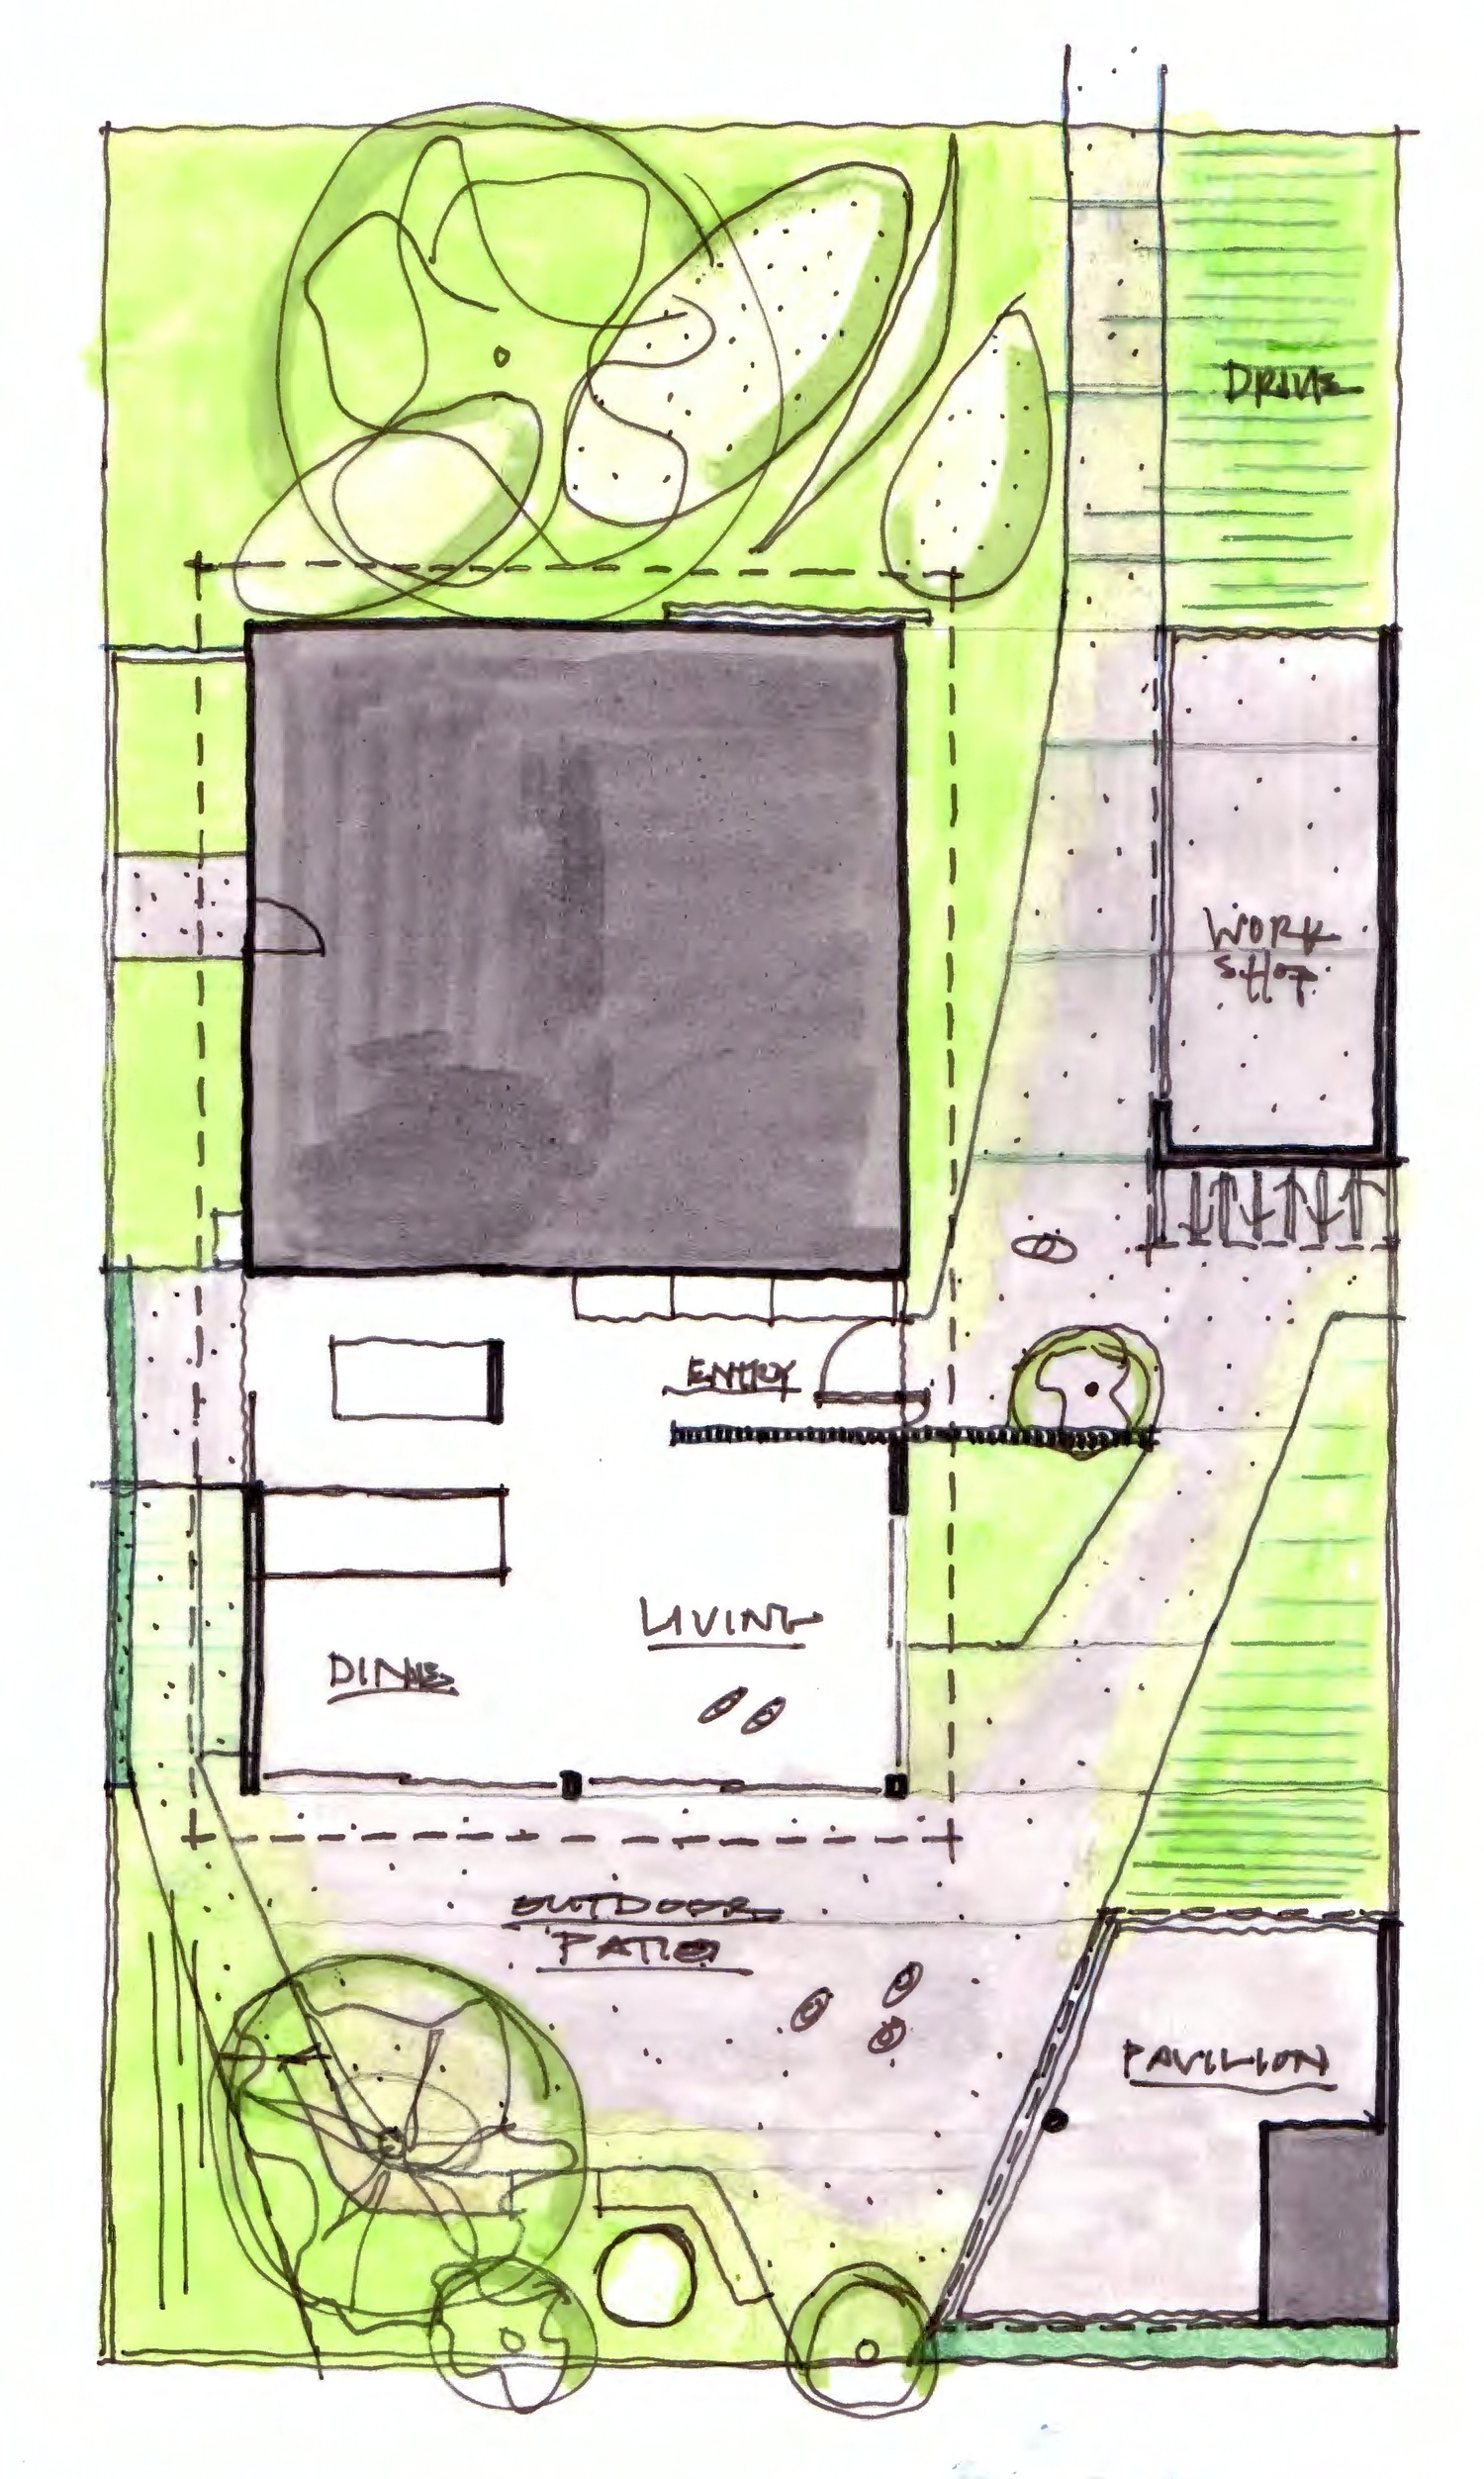 DRIVE
WORK
SHOP
ENTRY
LIVING
DINING
OUTDOOR
PATIO
PAVILION